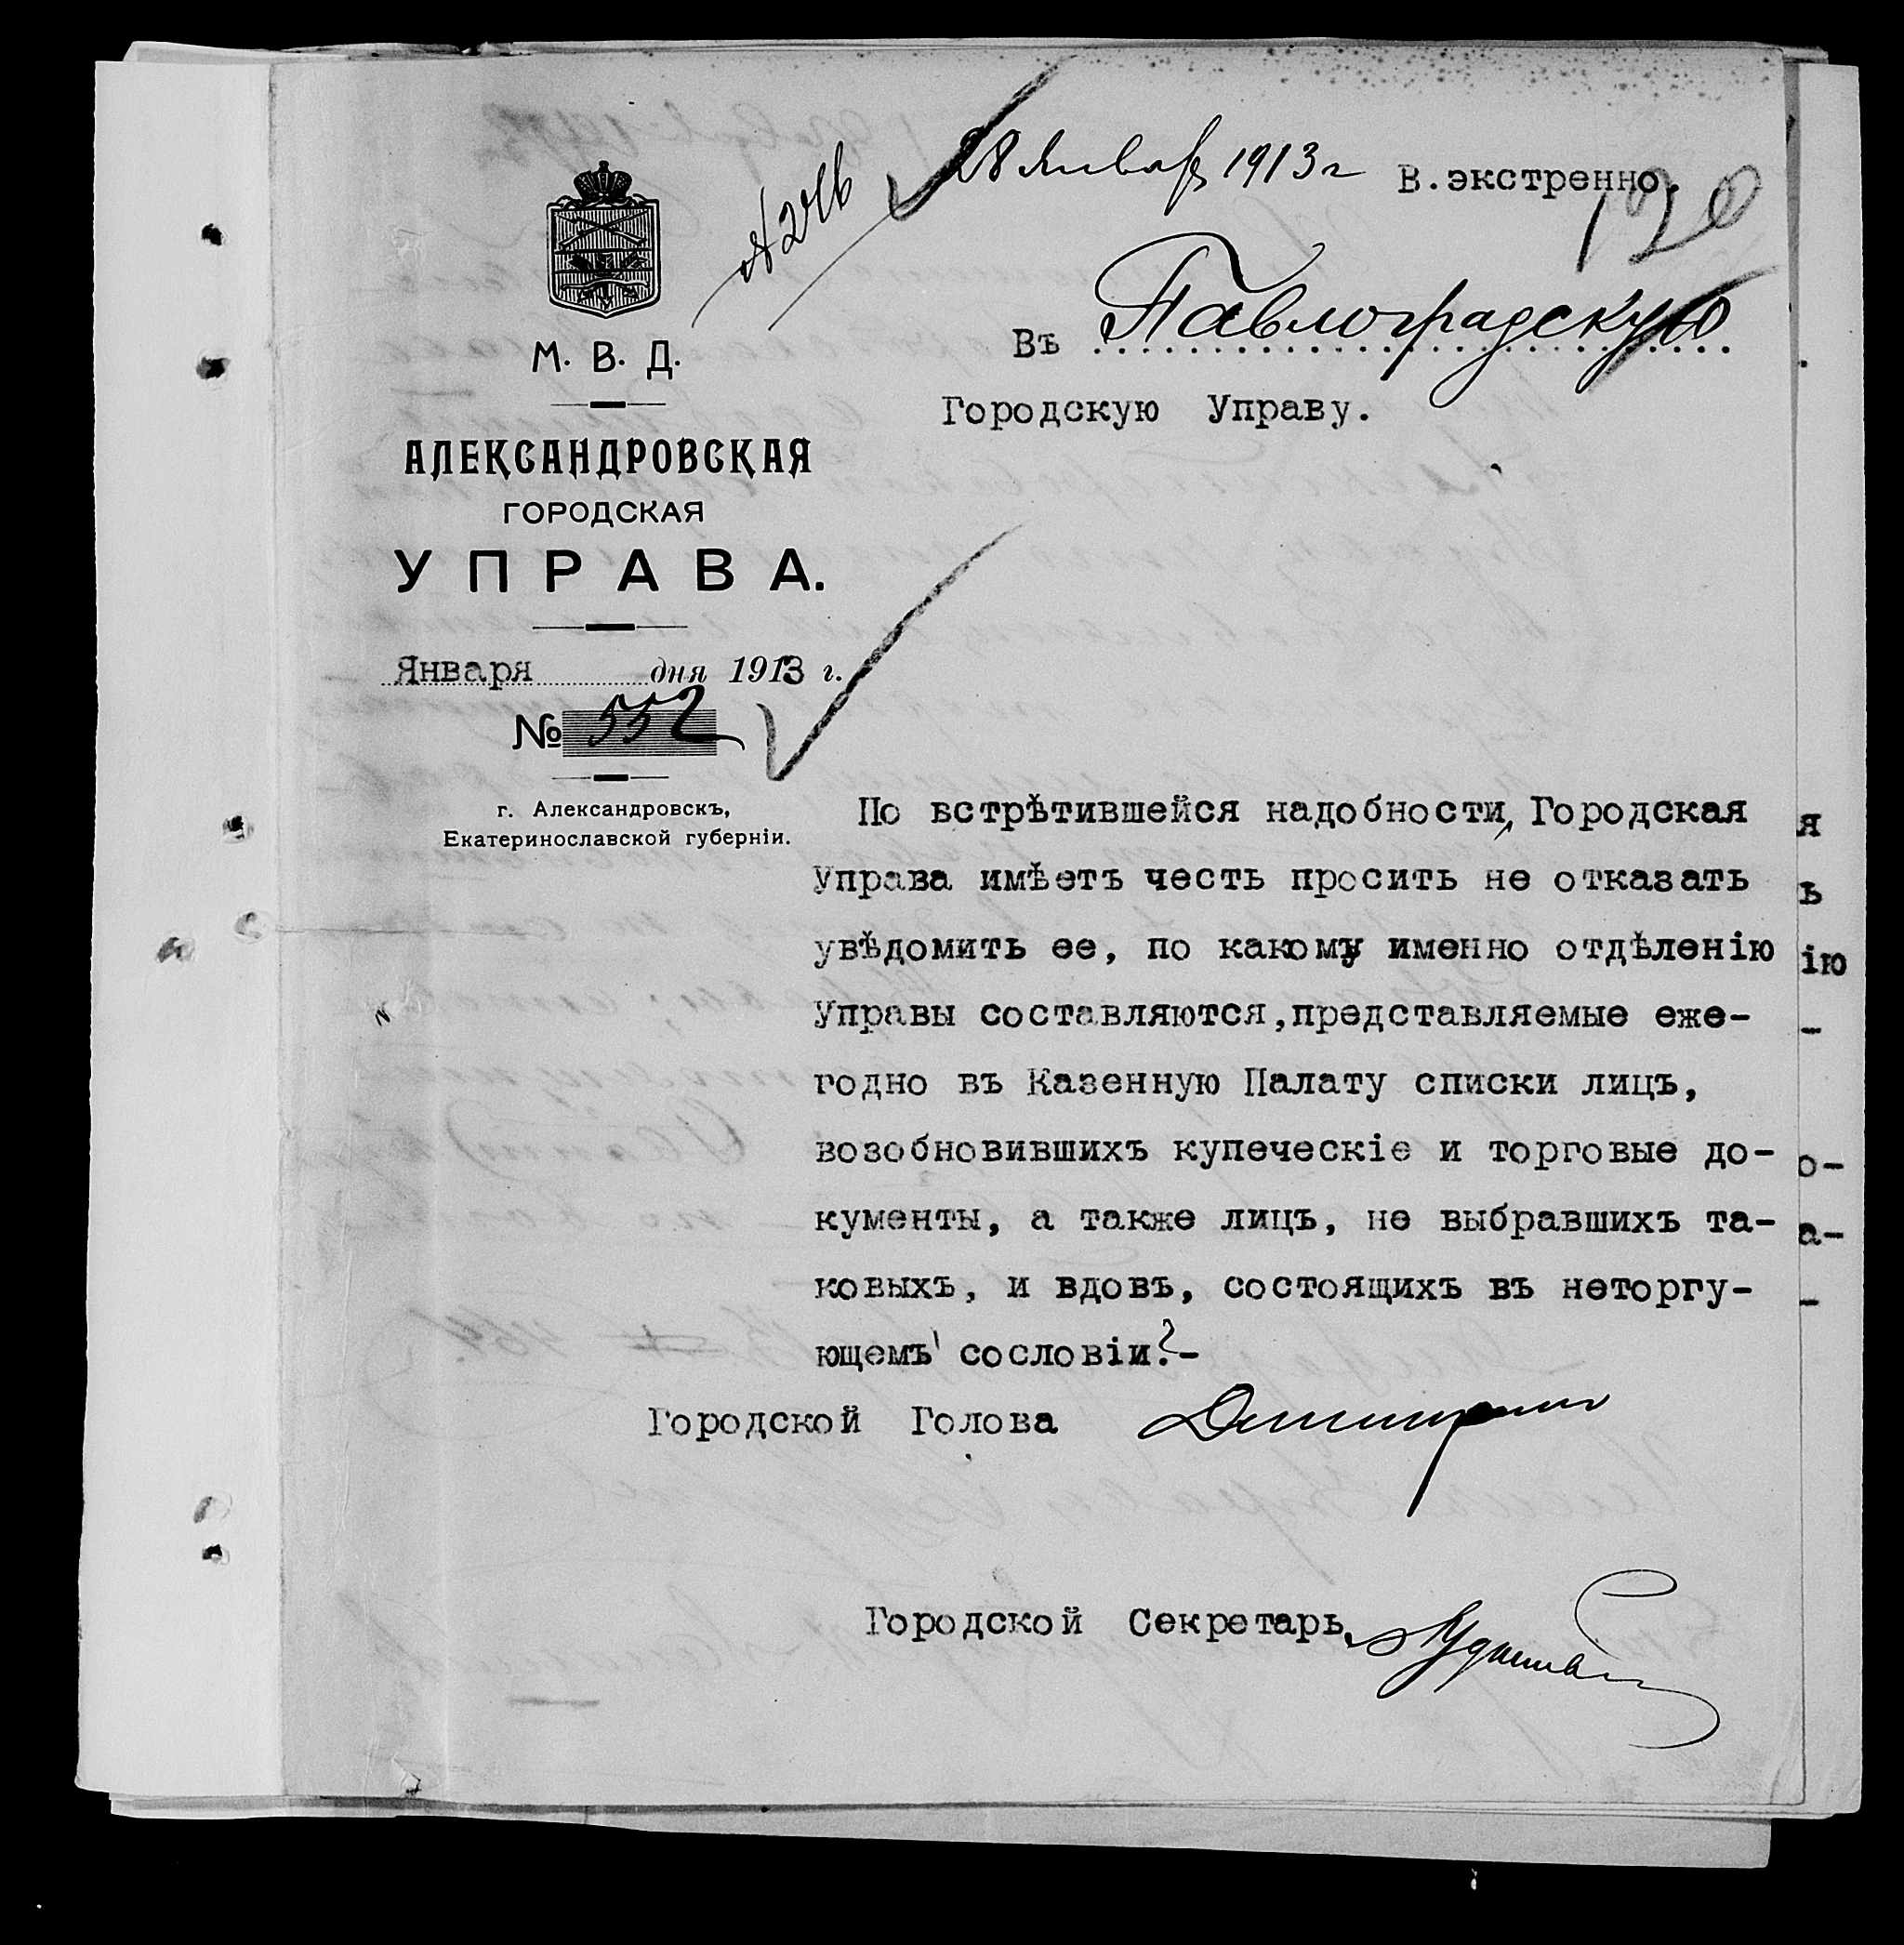 28 Январ 1913 г
В. экстренно.
120
М. В. Д.
АЛЕКСАНДРОВСКАЯ
ГОРОДСКАЯ
УПРАВА.
Января дня 1913 г.
№ 552
г. Александровскъ,
Екатеринославской губерніи.
Въ Павлоградскую
Городскую Управу.
По встрѣтившейся надобности, Городская
Управа имѣетъ честь просить не отказать
увѣдомить ее, по какому именно отдѣленію
Управы составляются, представляемые еже-
годно въ Казенную Палату списки лицъ,
возобновившихъ купеческіе и торговые до-
кументы, а также лицъ, не выбравшихъ та-
ковыхъ, и вдовъ, состоящихъ въ неторгу-
ющемъ сословіи?-
Городской Голова
Городской Секретарь
я
ъ
ію
-
о-
а-
-